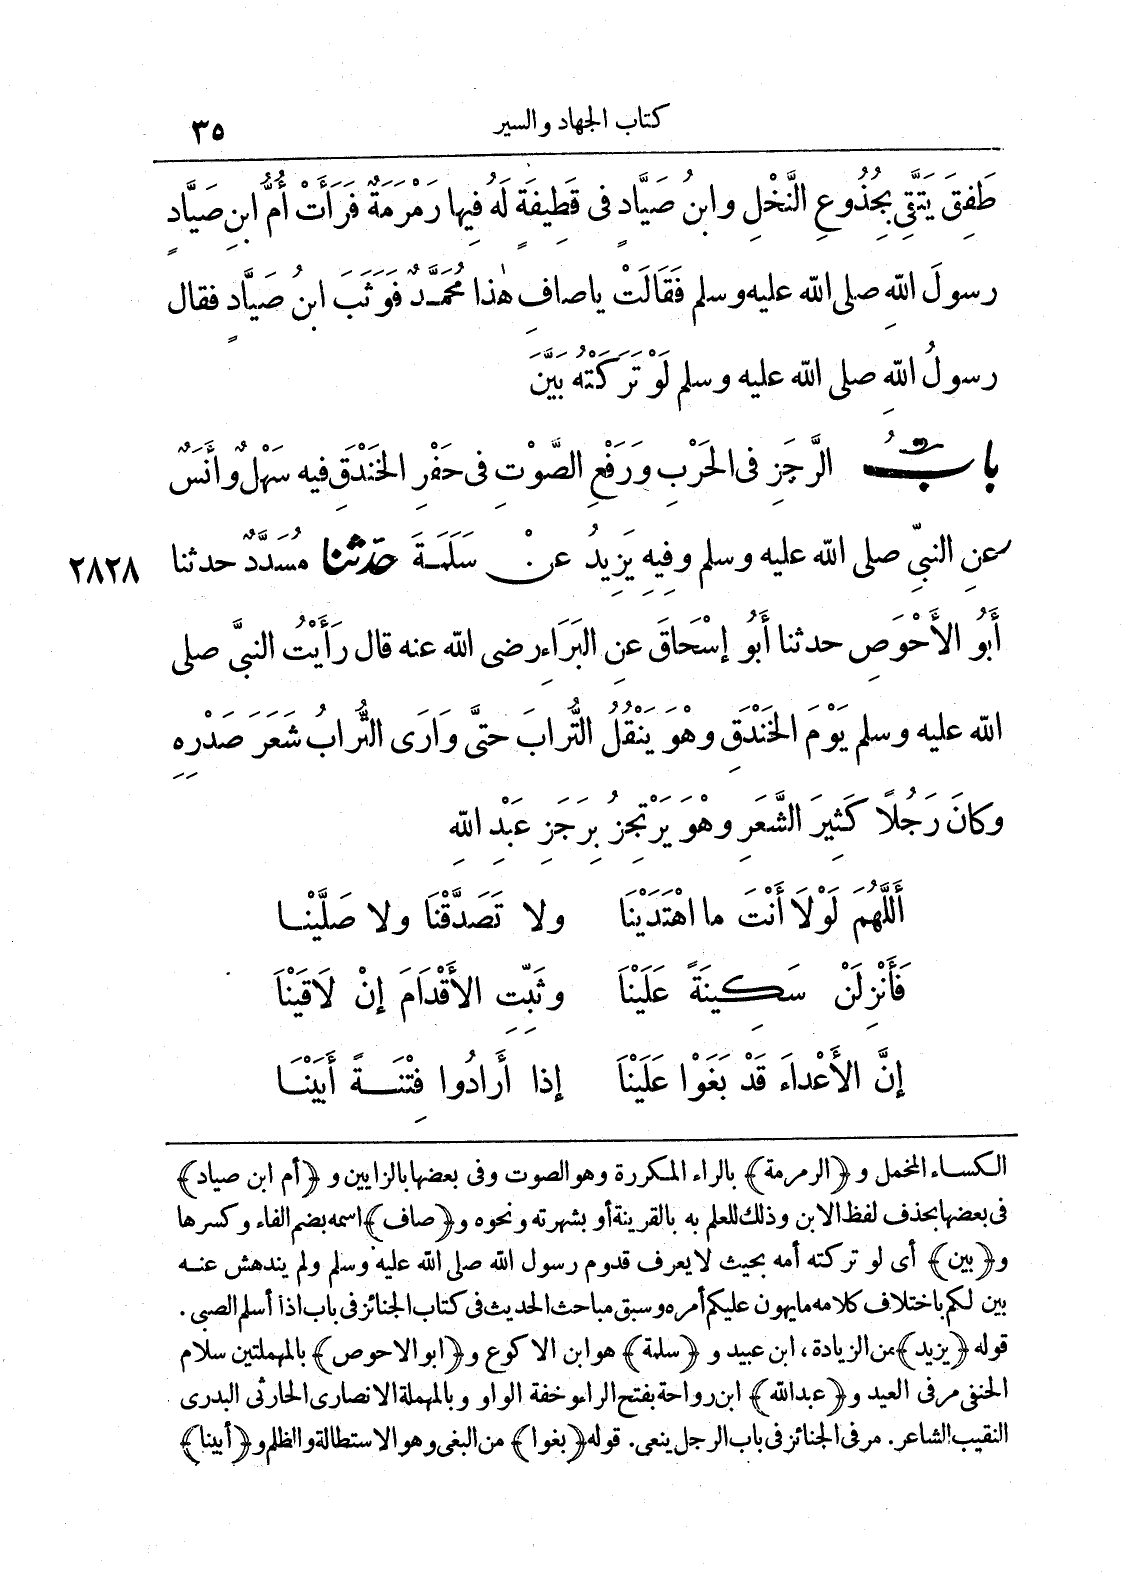 كتاب الجهاد والسير
٣٥
طَفِقَ يَتَّقِي بِجُذُوعِ النَّخْلِ وابنُ صَيَّادٍ فى قَطِيفَةٍ لَهُ فِيها رَمْرَمَةٌ فَرَأَتْ أُمُّ ابنِ صَيَّادٍ
رسولَ اللّهِ صلى اللّه عليه وسلم فَقَالَتْ ياصافِ هٰذا مُحَمَّدٌ فَوَثَبَ ابنُ صَيَّادٍ فقال
رسولُ اللّهِ صلى اللّه عليه وسلم لَوْ تَرَكَتْهُ بَيَّنَ
بابُ الرَّجَزِ فى الحَرْبِ ورَفْعِ الصَّوْتِ فى حَفْرِ الخَنْدَقِ فيه سَهْلٌ وأَنَسٌ
عنِ النبيِّ صلى اللّه عليه وسلم وفِيهِ يَزِيدُ عنْ سَلَمَةَ حَدّثنا مُسَدَّدٌ حدثنا
٢٨٢٨
أَبُو الأَحْوَصِ حدثنا أَبُو إسْحَاقَ عنِ البَرَاءِ رضى اللّه عنه قال رَأَيْتُ النبيَّ صلى
اللّه عليه وسلم يَوْمَ الخَنْدَقِ وهْوَ يَنْقُلُ التُّرابَ حتَّى وَارَى التُّرابُ شَعَرَ صَدْرِهِ
وكانَ رَجُلاً كَثِيرَ الشَّعَرِ وهْوَ يَرْتَجِزُ بِرَجَزِ عَبْدِ اللّهِ
أَللَّهُمَّ لَوْلاَ أَنْتَ ما اهْتَدَيْنَا ولا تَصَدَّقْنَا ولا صَلَّيْنا
فَأَنْزِلَنْ سَكِينَةً عَلَيْنَا وثَبِّتِ الأَقْدَامَ إنْ لاَقَيْنَا
إنَّ الأَعْداءَ قَدْ بَغَوْا عَلَيْنَا إذا أَرادُوا فِتْنَةً أَبَيْنَا
الكساء المخمل و ﴿الرمرمة﴾ بالراء المكررة وهو الصوت وفى بعضها بالزايين و ﴿أم ابن صياد﴾
فى بعضها بحذف لفظ الابن وذلك للعلم به بالقرينة أو بشهرته ونحوه و﴿صاف﴾ اسمه بضم الفاء وكسرها
و﴿بين﴾ أى لو تركته أمه بحيث لا يعرف قدوم رسول اللّه صلى اللّه عليه وسلم ولم يندهش عنه
بين لكم باختلاف كلامه مايهون عليكم أمره وسبق مباحث الحديث فى كتاب الجنائز فى باب اذا أسلم الصبى.
قوله ﴿يزيد﴾ من الزيادة، ابن عبيد و ﴿سلمة﴾ هو ابن الاكوع و﴿ابو الاحوص﴾ بالمهملتين سلام
الحنفى مر فى العيد و ﴿عبداللّه﴾ ابن رواحة بفتح الراء وخفة الواو وبالمهملة الانصارى الحارثى البدرى
النقيب الشاعر. مر فى الجنائز فى باب الرجل ينعى. قوله ﴿بغوا﴾ من البغى وهو الاستطالة والظلم و﴿أبينا﴾